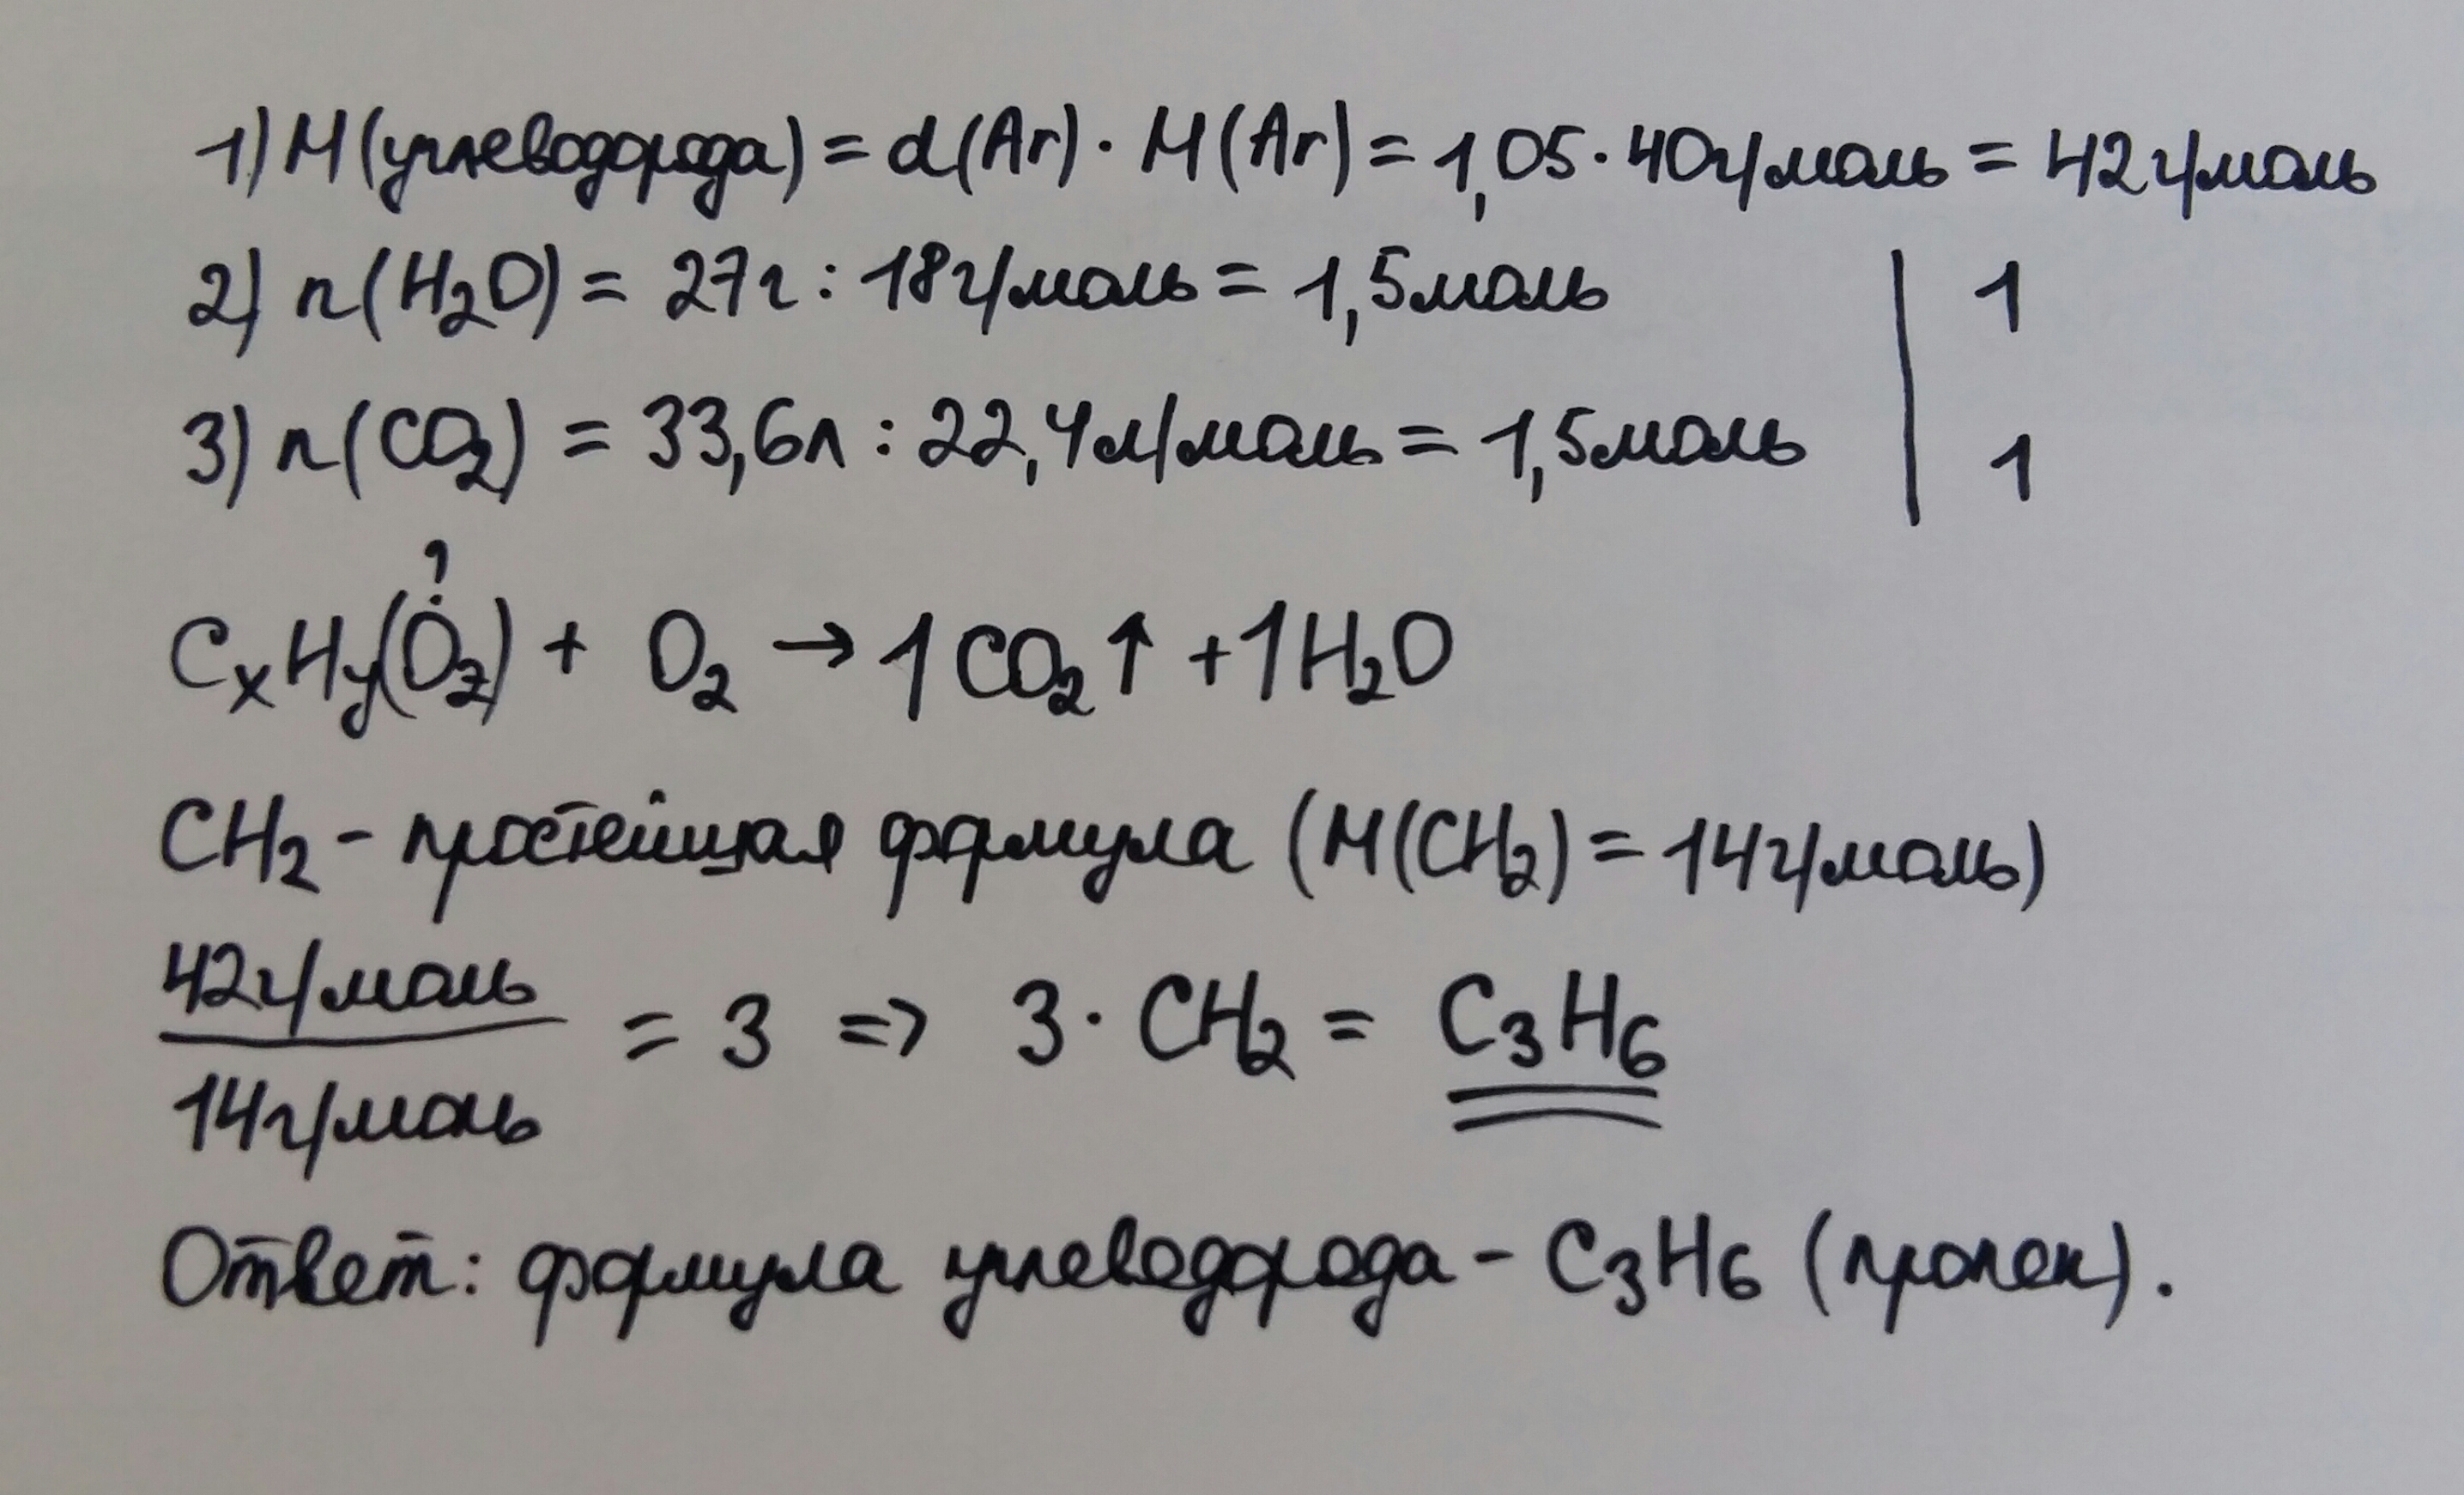 1) M(углеводорода) = d(Ar) · M(Ar) = 1,05 · 40г/моль = 42г/моль
2) n(H₂O) = 27г : 18г/моль = 1,5моль | 1
3) n(CO₂) = 33,6л : 22,4л/моль = 1,5моль | 1
?
CxHy(Oz) + O₂ → 1CO₂↑ + 1H₂O
CH₂ - простейшая формула (M(CH₂) = 14г/моль)
42г/моль / 14г/моль = 3 => 3 · CH₂ = C₃H₆
Ответ: формула углеводорода - C₃H₆ (пропен).